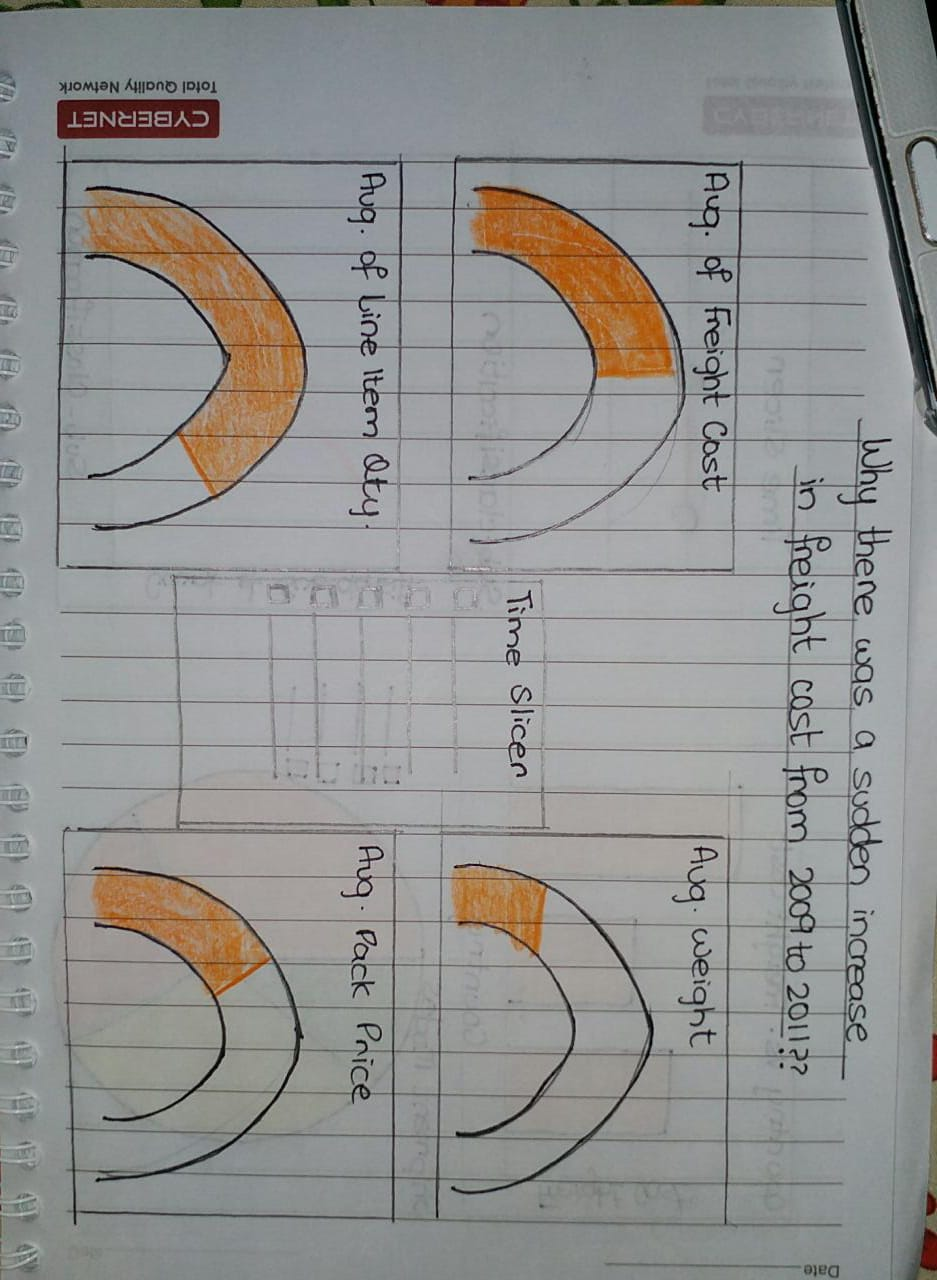 Date
Why there was a sudden increase
in freight cost from 2009 to 2011??
Avg. of Freight Cost
Avg. weight
Time Slicer
Avg. of Line Item Qty.
Avg. Pack Price
CYBERNET
Total Quality Network